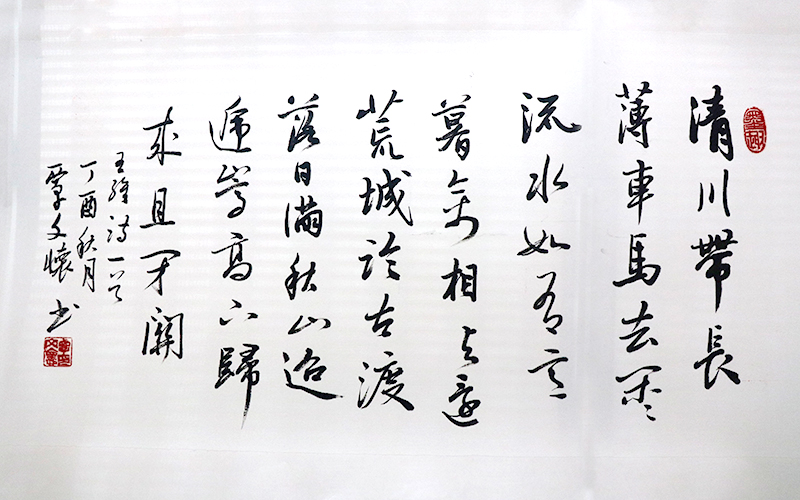 清川帶長
薄車馬去閑〻
流水如有意
暮禽相与還
荒城臨古渡
落日滿秋山迢
遞嵩高下歸
來且閉關
王維詩一首
丁酉秋月
覃文懷書